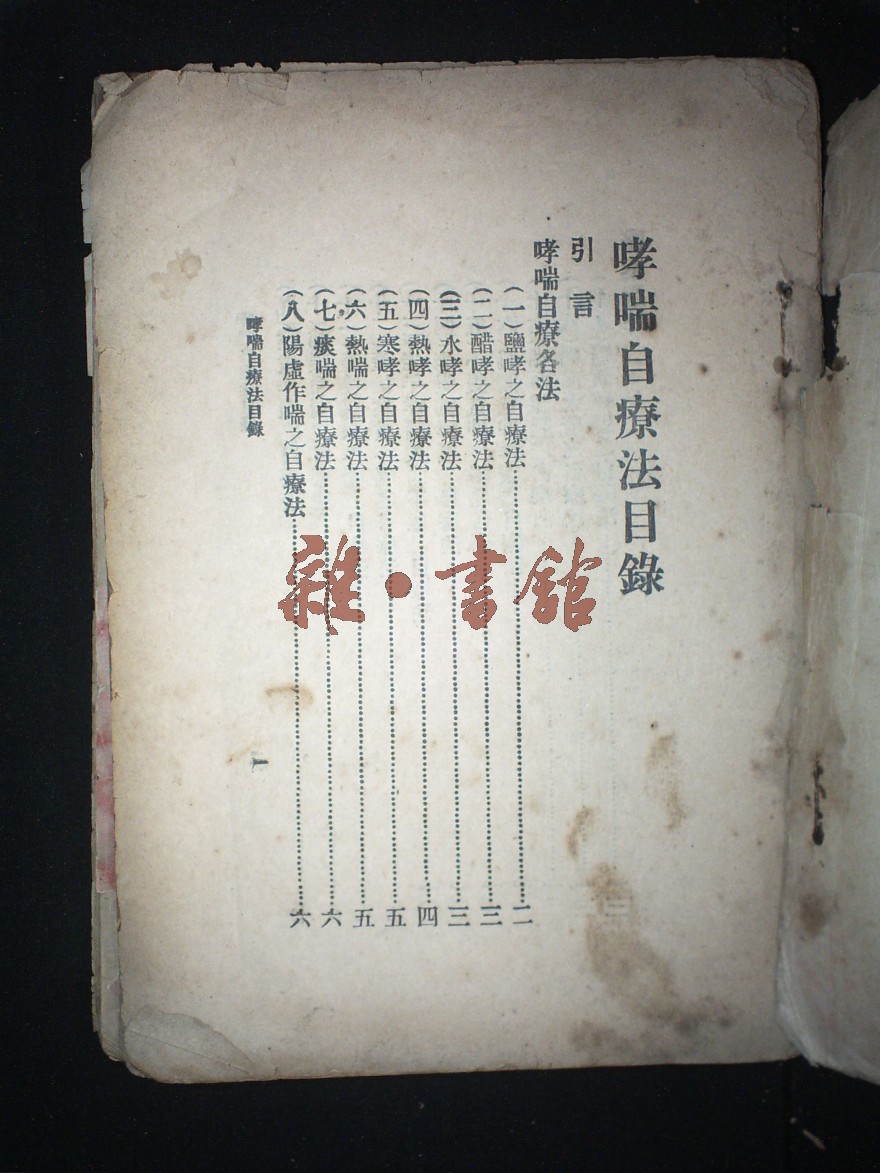 哮喘自療法目錄
引言
哮喘自療各法
(一)鹽哮之自療法……二
(二)醋哮之自療法……三
(三)水哮之自療法……三
(四)熱哮之自療法……四
(五)寒哮之自療法……五
(六)熱喘之自療法……五
(七)痰喘之自療法……六
(八)陽虛作喘之自療法……六
哮喘自療法目錄
一
雜·書館